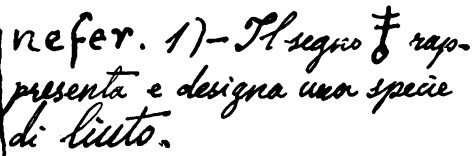 nefer. 1)- Il segno 𓄤 rap-
presenta e designa una specie
di liuto.